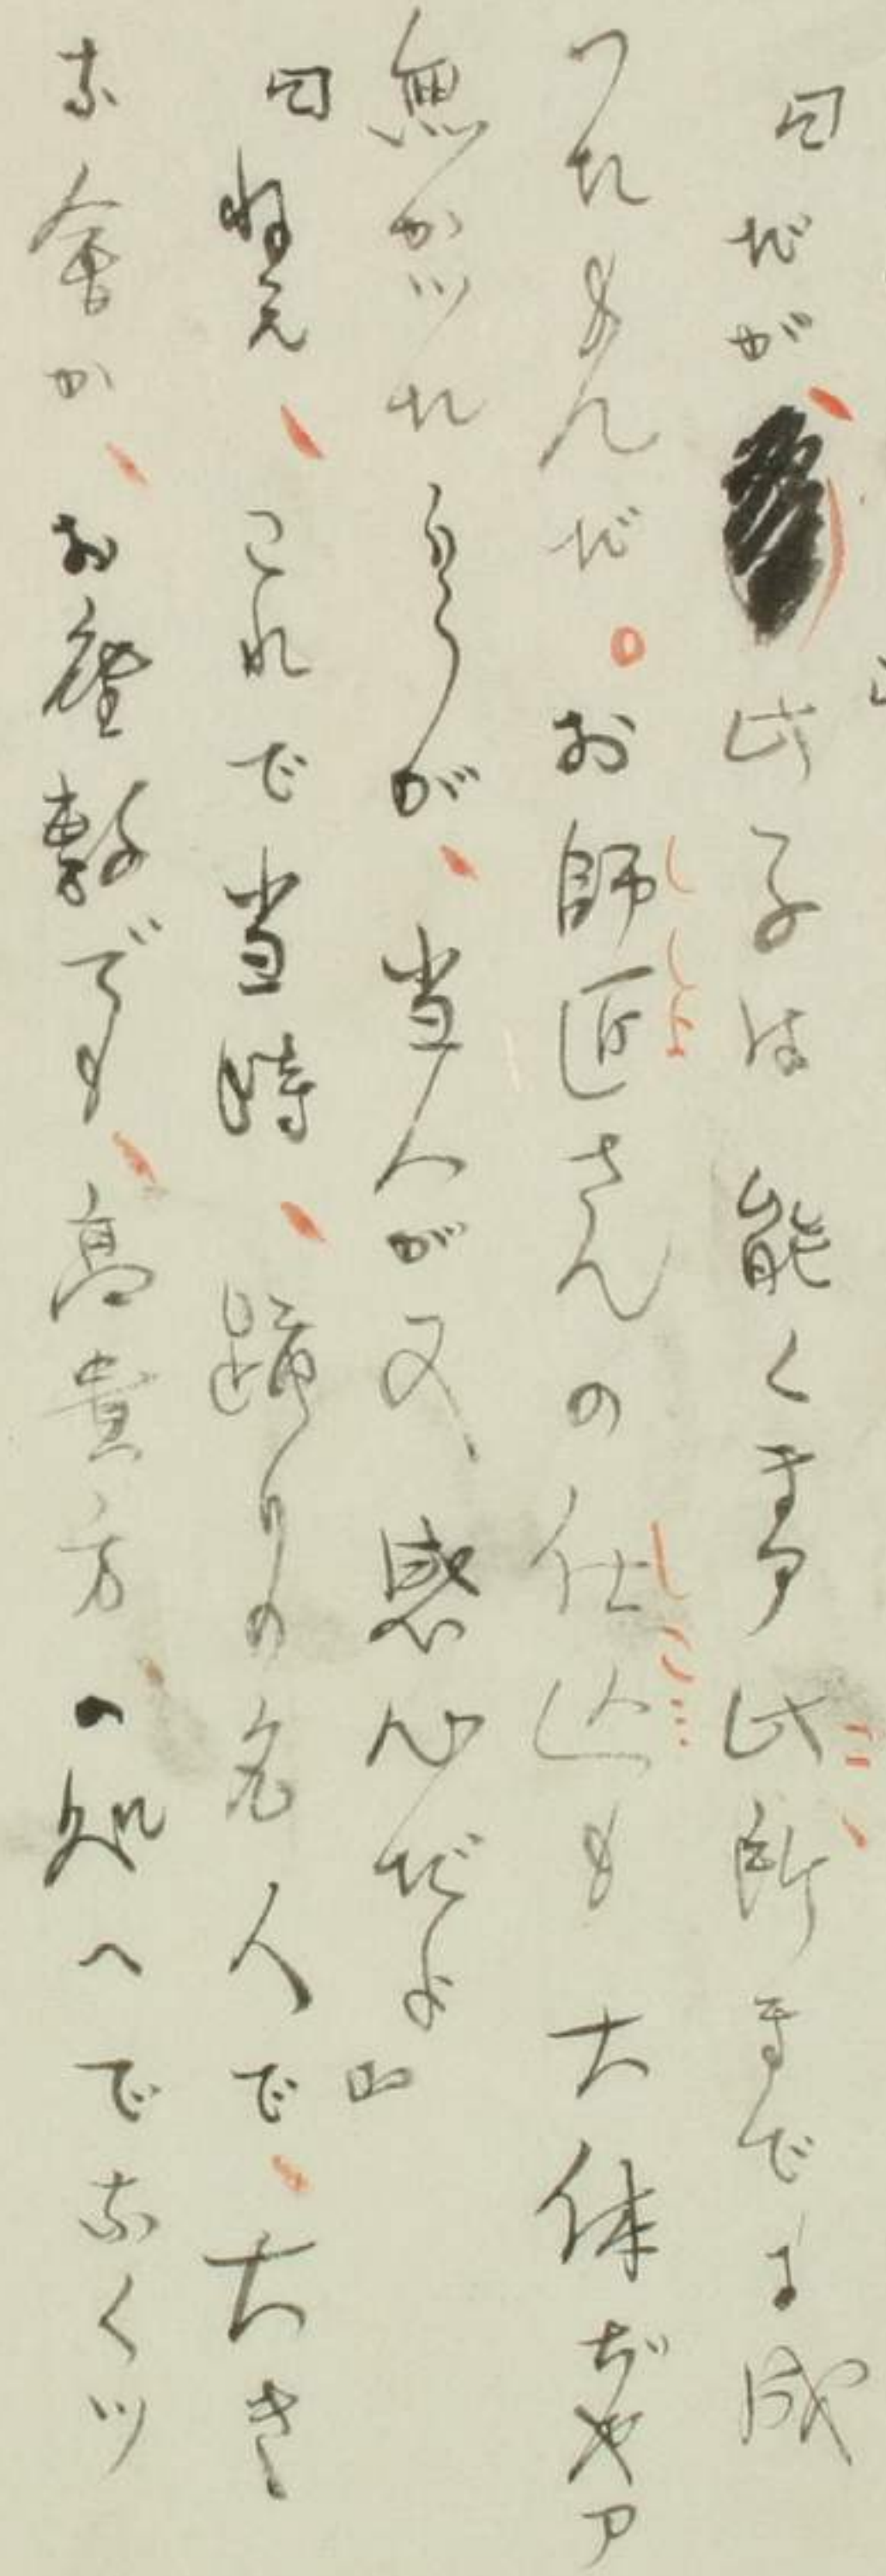 「だが、此子は能くまア此所までに成
つたもんだ。お師匠さんの仕込も大体ぢやア
無かツたらうが、当人が又感心だよ」
「ねえ、これで当時、踊りの名人で、大き
な会か、お座敷でも、高貴方の処へでなくツ